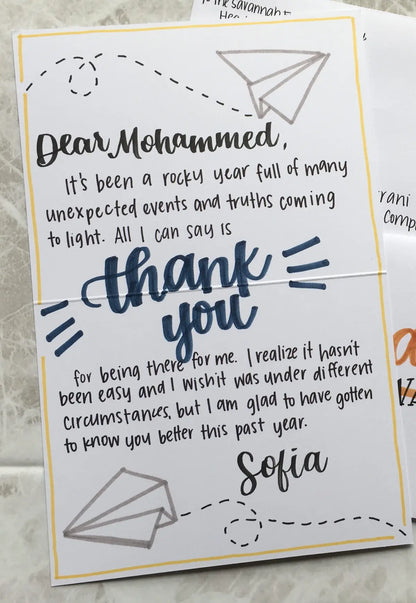 to the Savannah
Dear Mohammed,
It's been a rocky year full of many
unexpected events and truths coming
to light. All I can say is
thank
you
for being there for me. I realize it hasn't
been easy and I wish it was under different
circumstances, but I am glad to have gotten
to know you better this past year.
Sofia